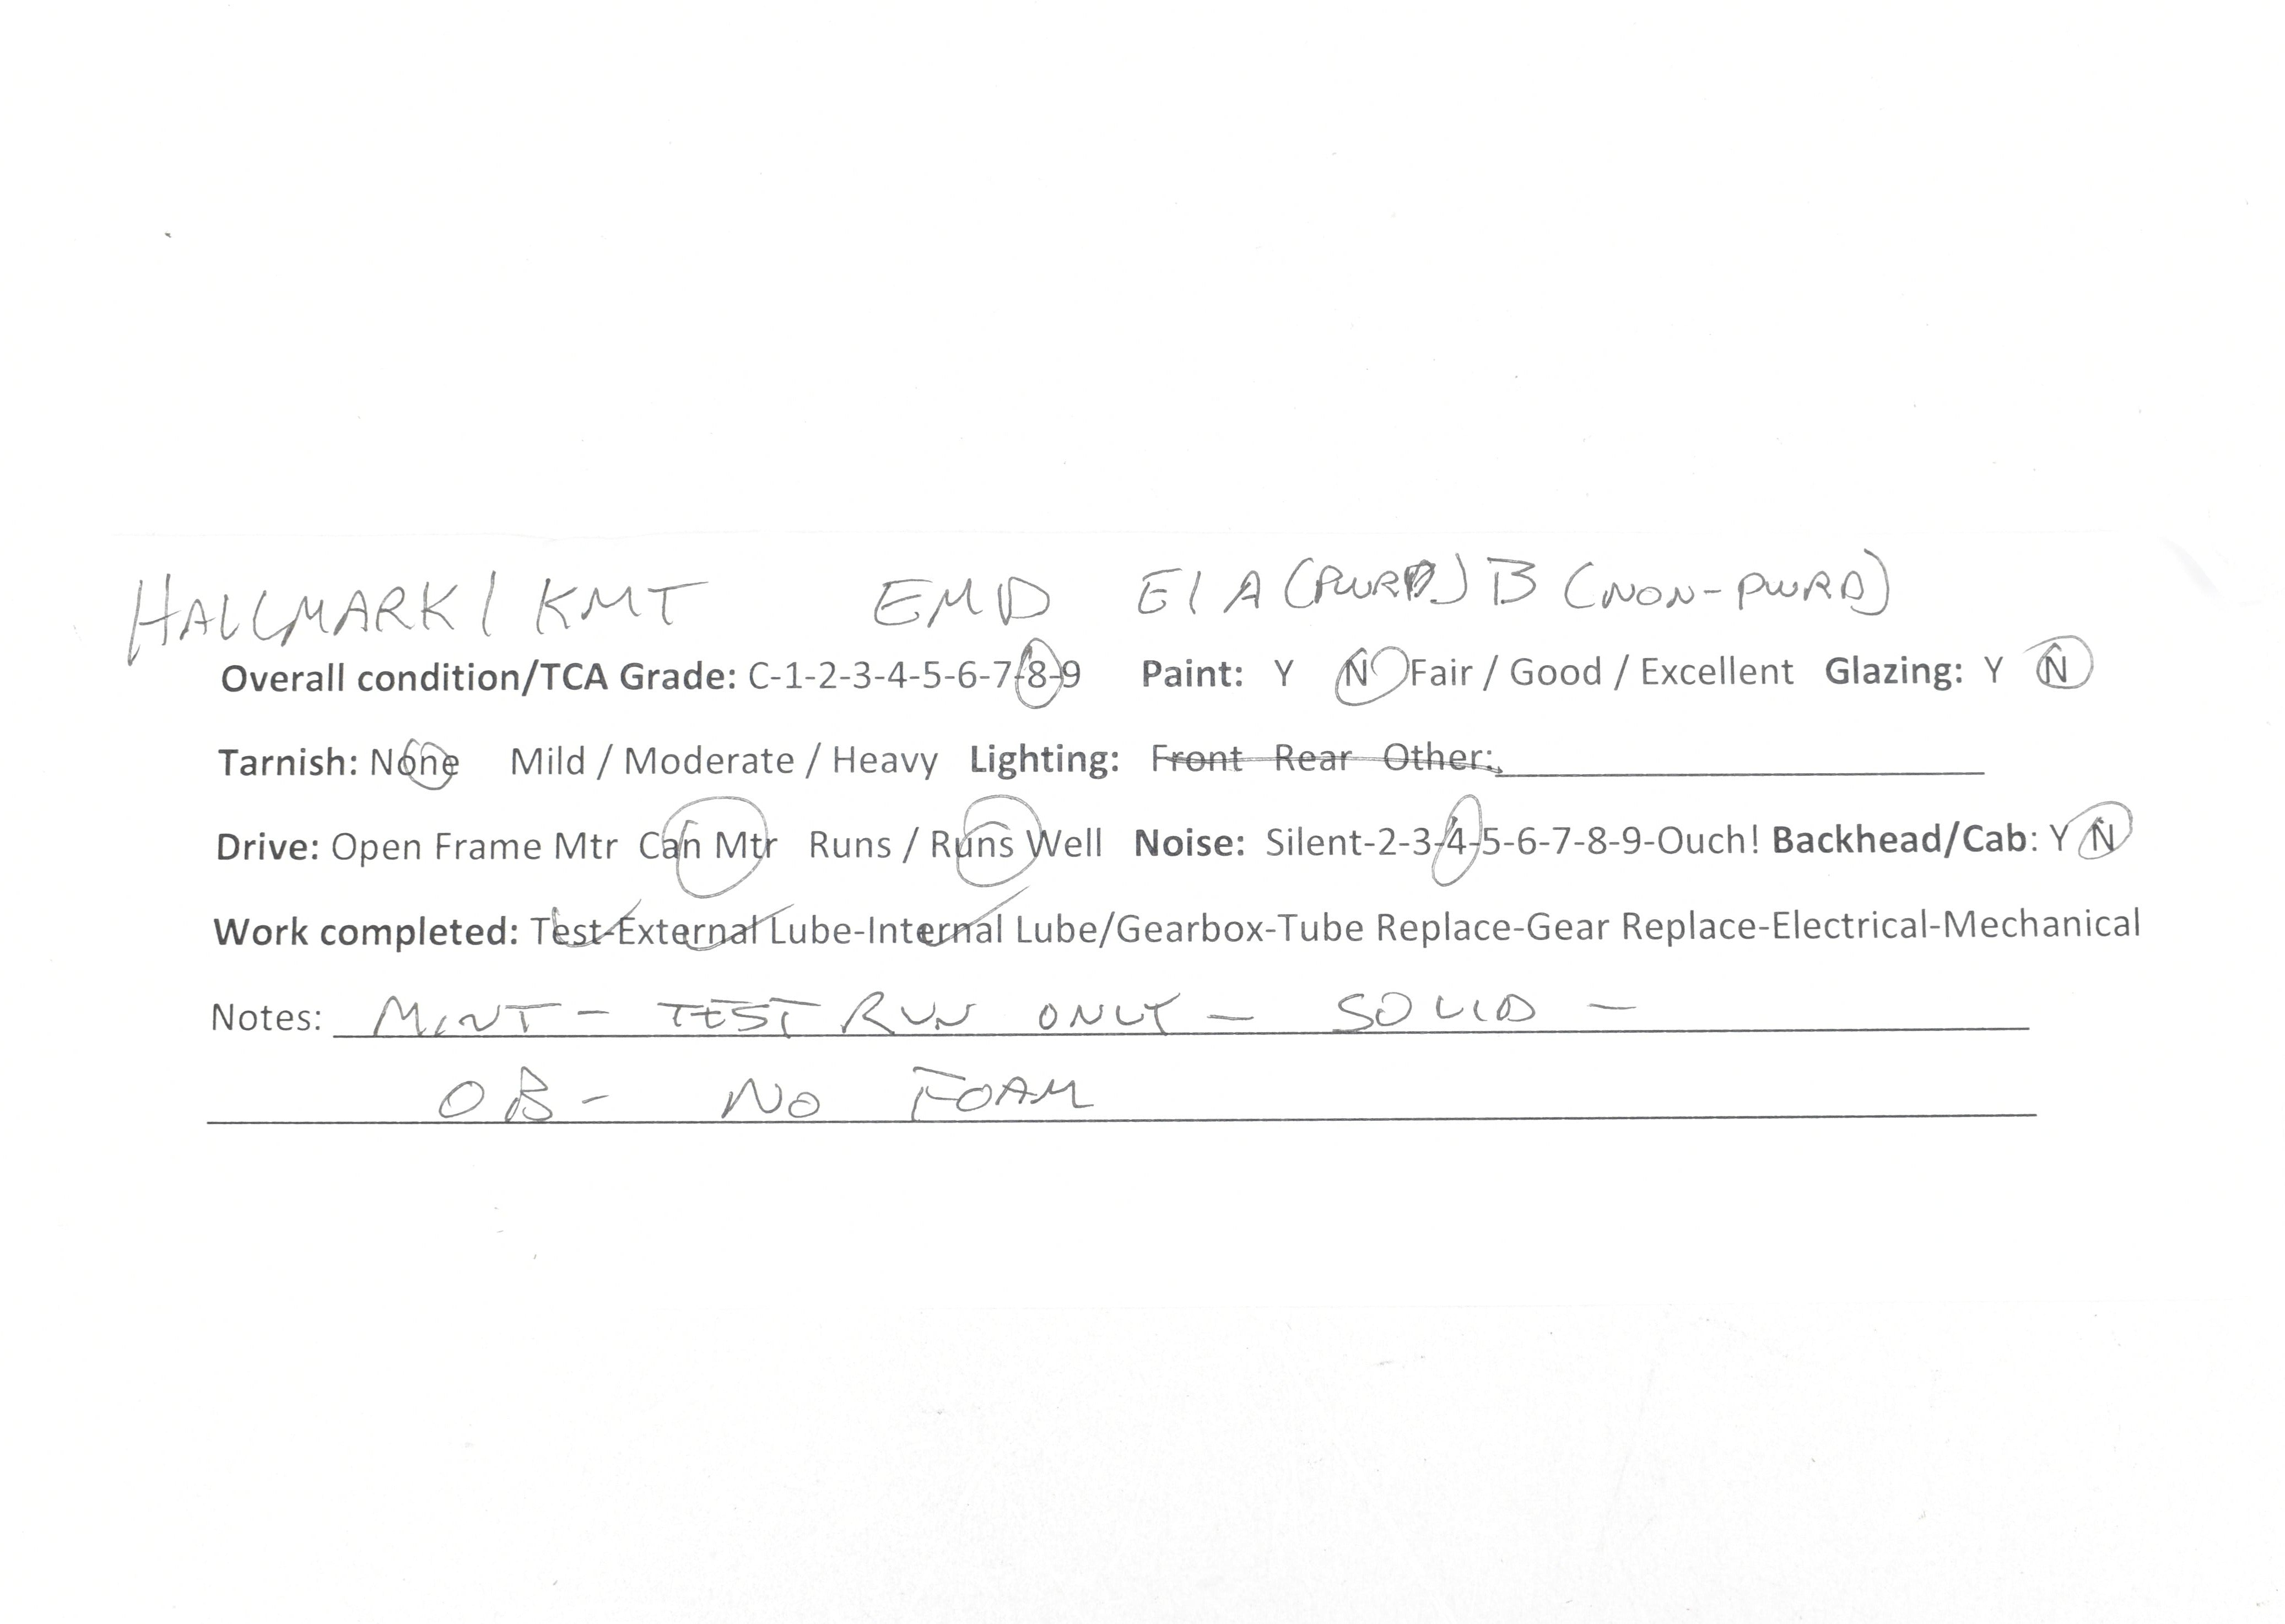 HALLMARK / KMT EMD E1 A (PWRD) B (NON-PWRD)
Overall condition/TCA Grade: C-1-2-3-4-5-6-7-8-9 Paint: Y N Fair / Good / Excellent Glazing: Y N
Tarnish: None Mild / Moderate / Heavy Lighting: Front Rear Other:
Drive: Open Frame Mtr Can Mtr Runs / Runs Well Noise: Silent-2-3-4-5-6-7-8-9-Ouch! Backhead/Cab: Y N
Work completed: Test-External Lube-Internal Lube/Gearbox-Tube Replace-Gear Replace-Electrical-Mechanical
Notes: MINT - TEST RUN ONLY - SOLID -
OB - NO FOAM